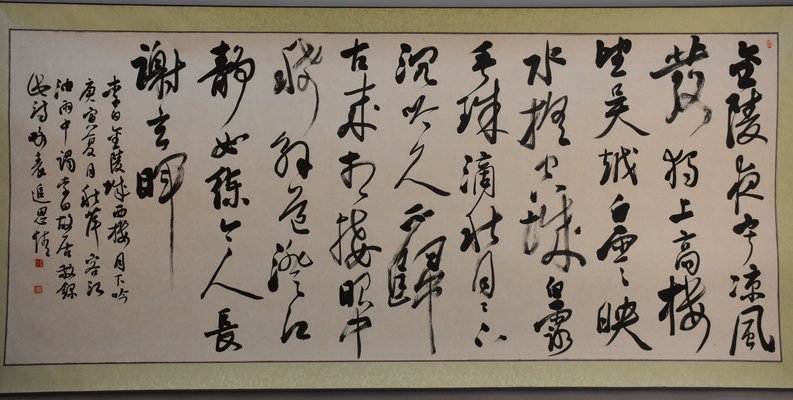 金陵夜寂凉風
發獨上高樓
望吴越白雲映
水摇空城白露
垂珠滴秋月々下
沉吟久不歸
古来相接眼中
稀解道澄江
静如練令人長
謝玄暉
李白金陵城西樓月下吟
庚寅夏月秋萍客於江
油雨中謁李白故居敬録
此詩略表追思情